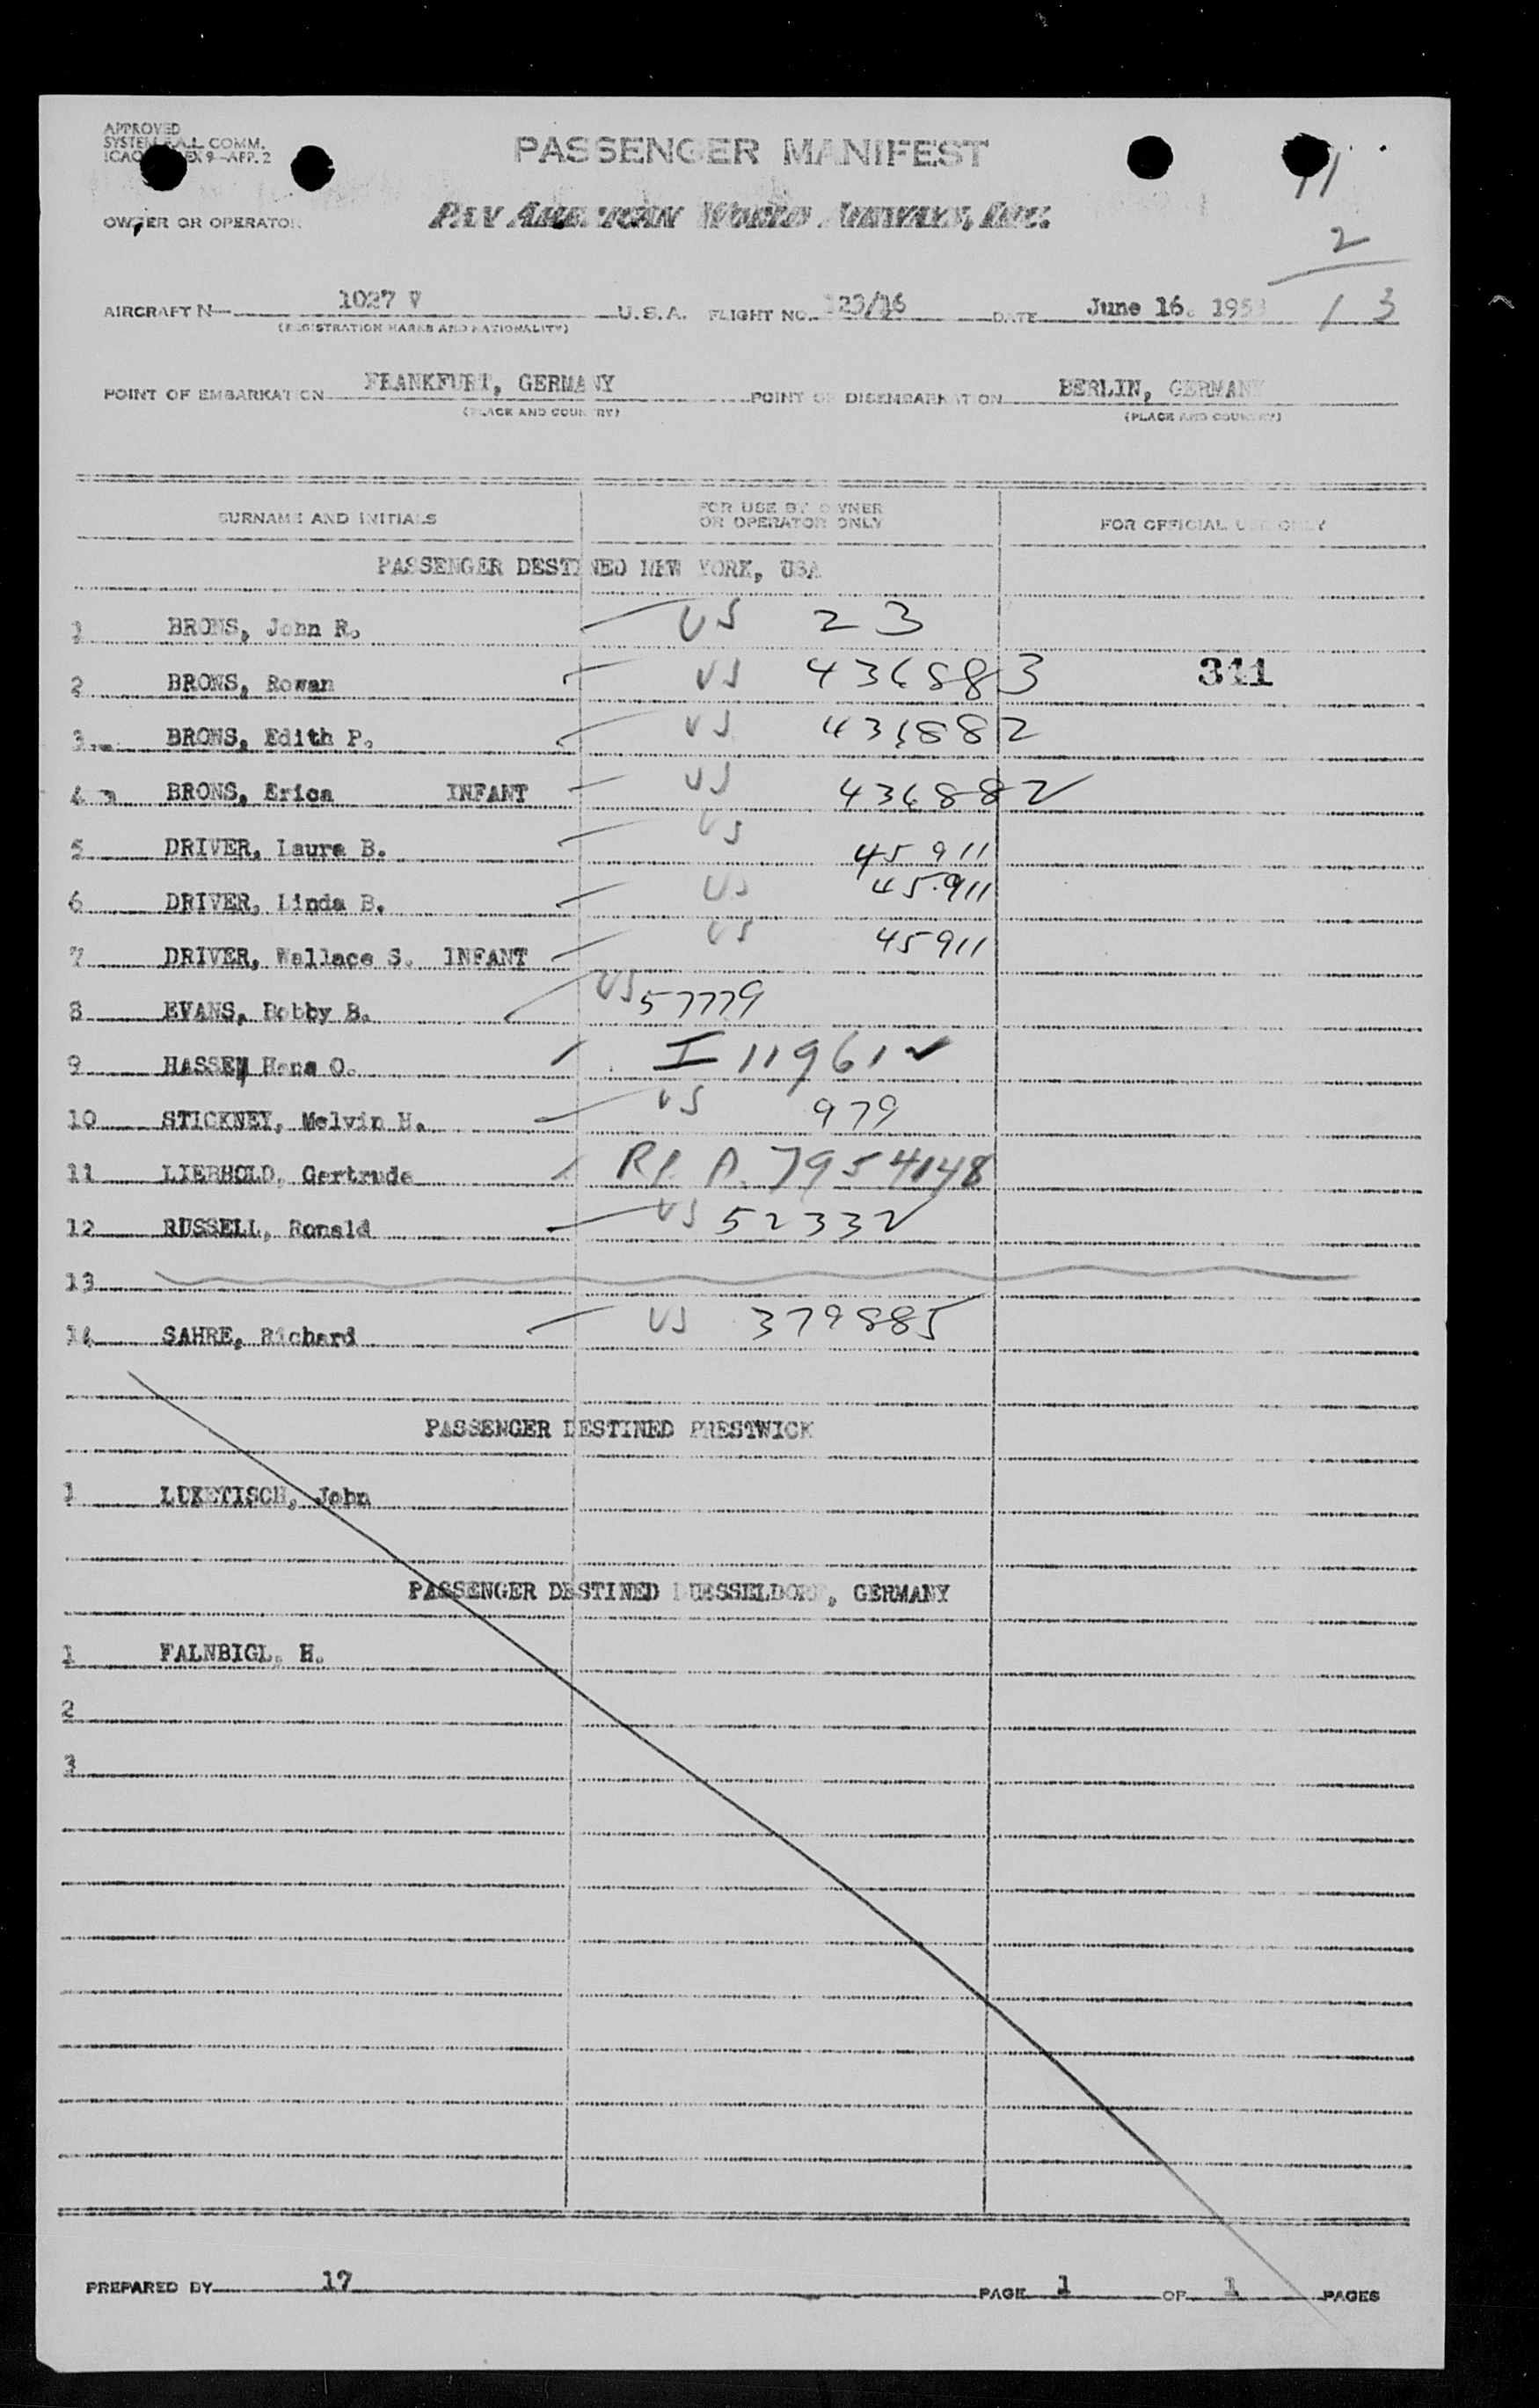 APPROVED
SYSTEM F.A.L. COMM.
ICAO EX 9—APP. 2
PASSENGER MANIFEST
11
OWNER OR OPERATOR
PAN AMERICAN WORLD AIRWAYS, INC.
2
13
AIRCRAFT N— 1027 V U.S.A. FLIGHT NO. 123/16 DATE June 16. 1953
(REGISTRATION MARKS AND NATIONALITY)
POINT OF EMBARKATION FRANKFURT, GERMANY POINT OF DISEMBARKATION BERLIN, GERMANY
(PLACE AND COUNTRY) (PLACE AND COUNTRY)
SURNAME AND INITIALS FOR USE BY OWNER OR OPERATOR ONLY FOR OFFICIAL USE ONLY
PASSENGER DESTINED NEW YORK, USA
1 BRONS, John R. US 23
2 BRONS, Rowan US 436883 311
3 BRONS, Edith P. US 436882
4 BRONS, Erica INFANT US 436882
5 DRIVER, Laura B. US 45911
6 DRIVER, Linda B. US 45911
7 DRIVER, Wallace S. INFANT US 45911
8 EVANS, Bobby B. US 57779
9 HASSE, Hans O. I 11961 ✓
10 STICKNEY, Melvin H. US 979
11 LIEBHOLD, Gertrude A 7954148
12 RUSSELL, Ronald US 52332
13
14 SAHRE, Richard US 379885
PASSENGER DESTINED PRESTWICK
1 LUKETISCH, John
PASSENGER DESTINED DUESSELDORF, GERMANY
1 FALNBIGL, H.
2
3
PREPARED BY 17 PAGE 1 OF 1 PAGES